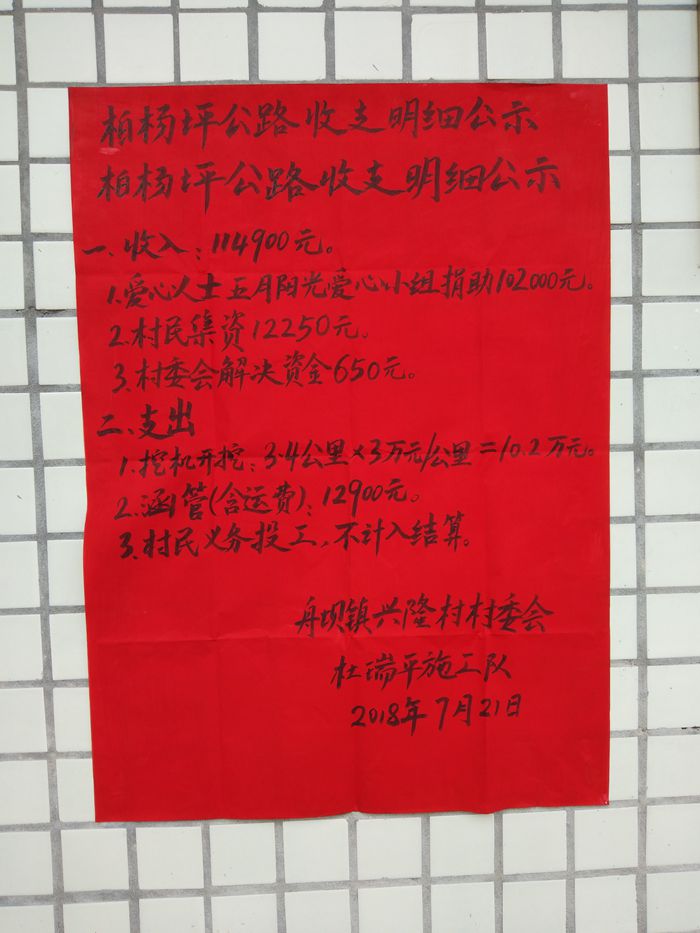 柏杨坪公路收支明细公示
柏杨坪公路收支明细公示
一、收入：114900元。
1.爱心人士五月阳光爱心小组捐助102000元。
2.村民集资12250元。
3.村委会解决资金650元。
二、支出
1.挖机开挖：3.4公里×3万元/公里=10.2万元。
2.涵管(含运费)：12900元。
3.村民义务投工，不计入结算。
舟坝镇兴隆村村委会
杜瑞平施工队
2018年7月21日